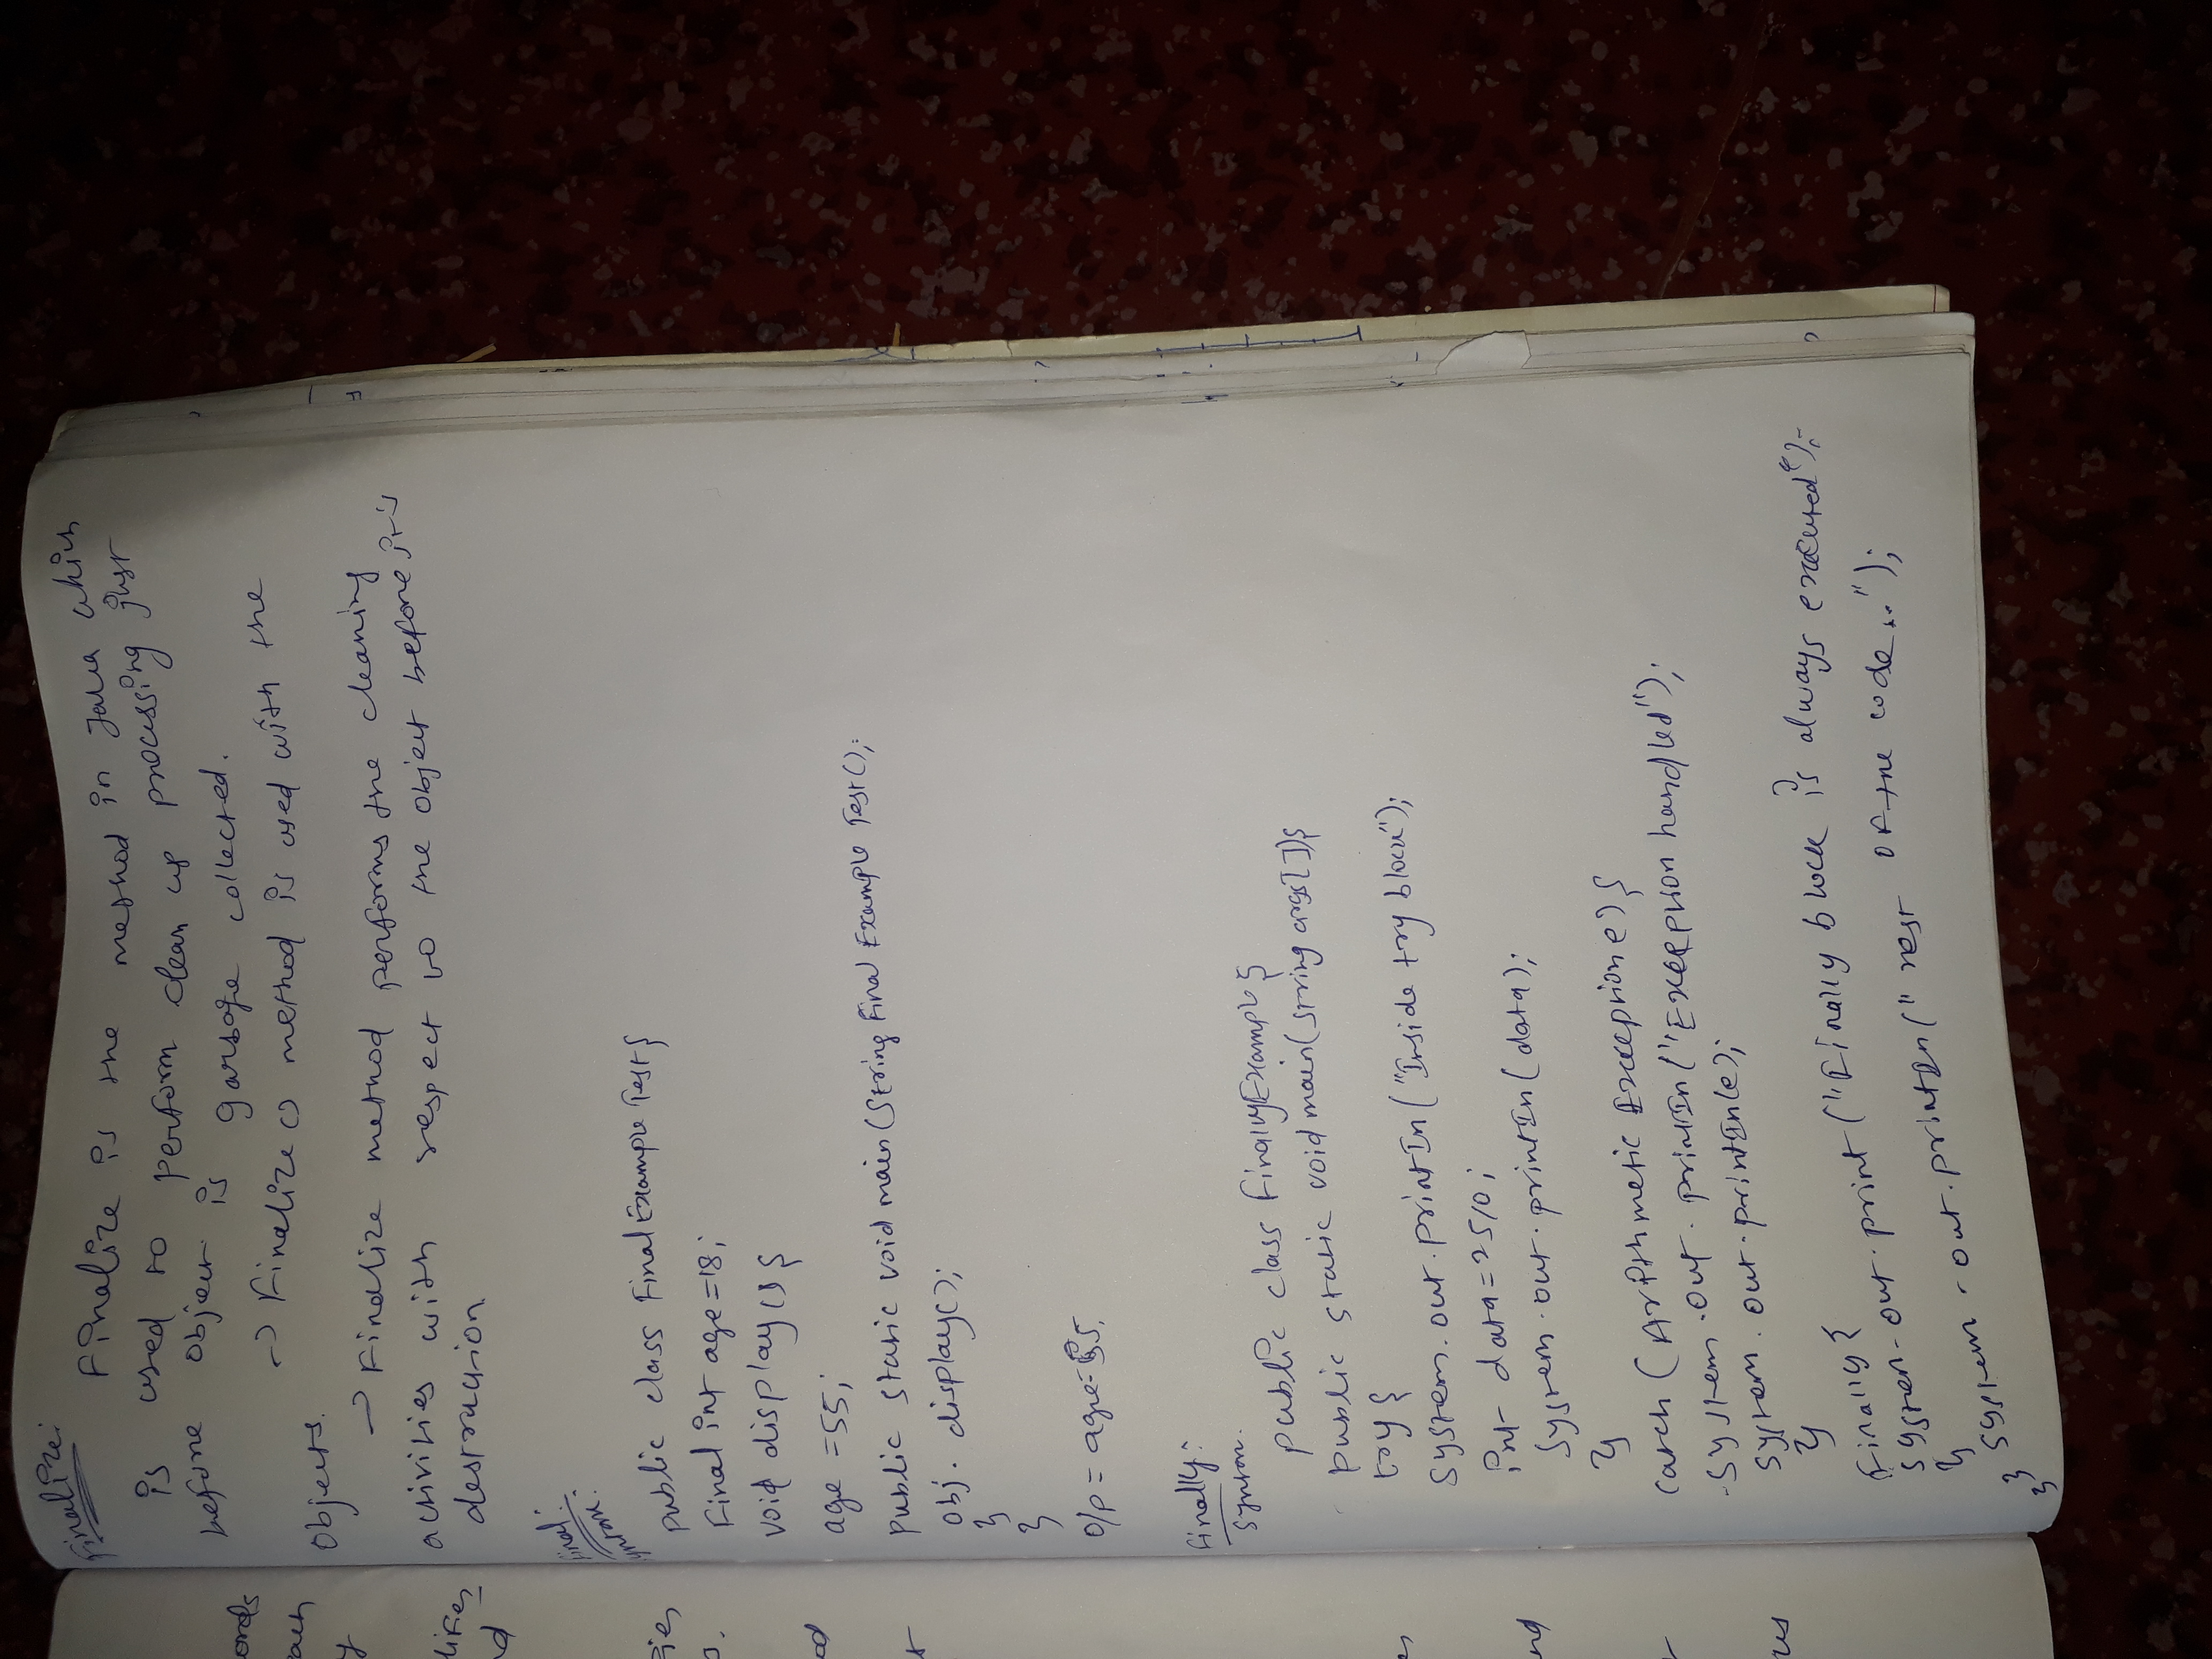 Finalize:
Finalize is the method in Java which
is used to perform clean up processing just
before object is garbage collected.
-> Finalize() method is used with the
objects.
-> Finalize method performs the cleaning
activities with respect to the object before it's
destruction.
Final:
Syntax:
public class FinalExampleTest{
Final int age=18;
void display() {
age =55;
public static void main(String Final Example Test();
obj. display();
}
}
O/p = age=55.
Finally:
Syntax.
public class FinallyExample{
public static void main(String args[]){
try {
System.out.printIn("Inside try block");
int data=25/0;
System.out.printIn(data);
}
catch (Arithmetic Exception e) {
System.out.printIn("Exception handled");
System.out.printIn(e);
}
Finally {
System.out.print("Finally block is always executed");
}
System.out.printIn("rest of the code..");
}
}
ords
each
y
lifies
nd
ies
s.
od
t
es
and
r
us